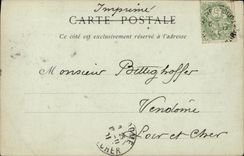 Imprimé
CARTE POSTALE
Ce côté est exclusivement réservé à l'adresse
Monsieur Bettighoffer
Vendôme
Loir et Cher
CHER